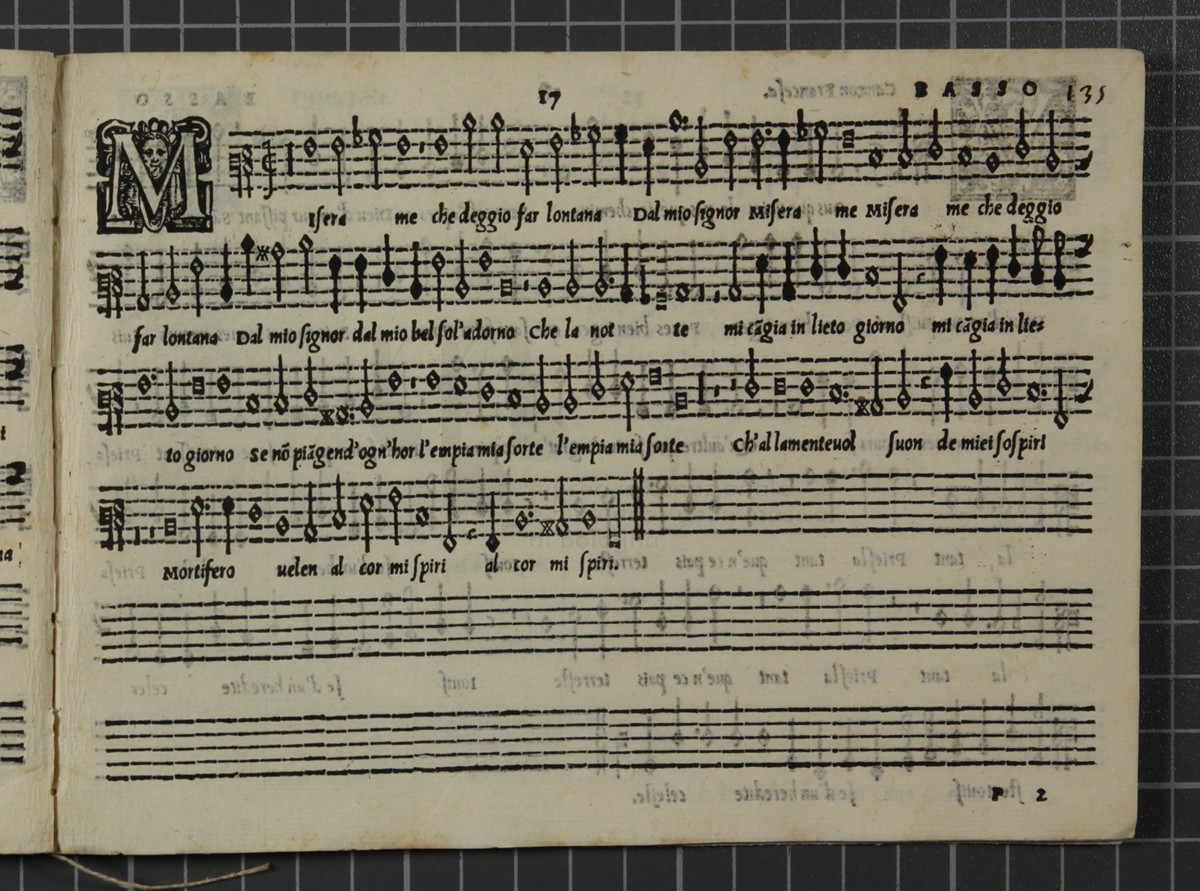 17 BASSO 135
MIsera me che deggio far lontana Dal mio signor Misera me Misera me che deggio
far lontana Dal mio signor dal mio bel sol'adorno Che la not te mi cãgia in lieto giorno mi cãgia in lie=
to giorno Se nõ piãgend'ogn'hor l'empia mia sorte l'empia mia sorte Ch'al lamenteuol suon de miei sospiri
Mortifero uelen al cor mi spiri al cor mi spiri.
P 2